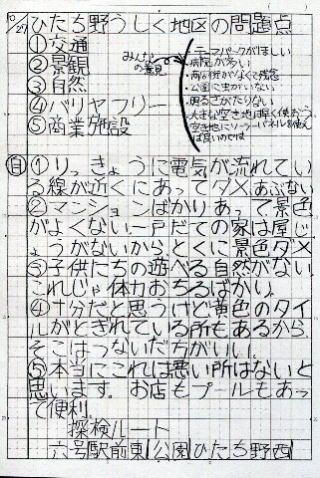 10/27
ひたち野うしく地区の問題点
①交通
②景観
③自然
④バリヤフリー
⑤商業施設
みんなの意見
・テーマパークがほしい
・病院が多い
・商店街がなくて残念
・公園に虫がいない
・明るさがたりない
・大きな空き地は早く使おう
・空き地にソーラーパネルを使えば良いのでは
自①りっきょうに電気が流れてい
る線が近くにあってダメ。あぶない
②マンションばかりあって景色
がよくない一戸だての家は屋じ
ょうがないからとくに景色ダメ
③子供たちの遊べる自然がない。
これじゃ体力おちるばかり。
④十分だと思うけど黄色のタイ
ルがとぎれている所もあるから、
そこはつないだ方がいい。
⑤本当にこれは悪い所はないと
思います。お店もプールもあっ
て便利。
探検ルート
六号駅前東公園ひたち野西